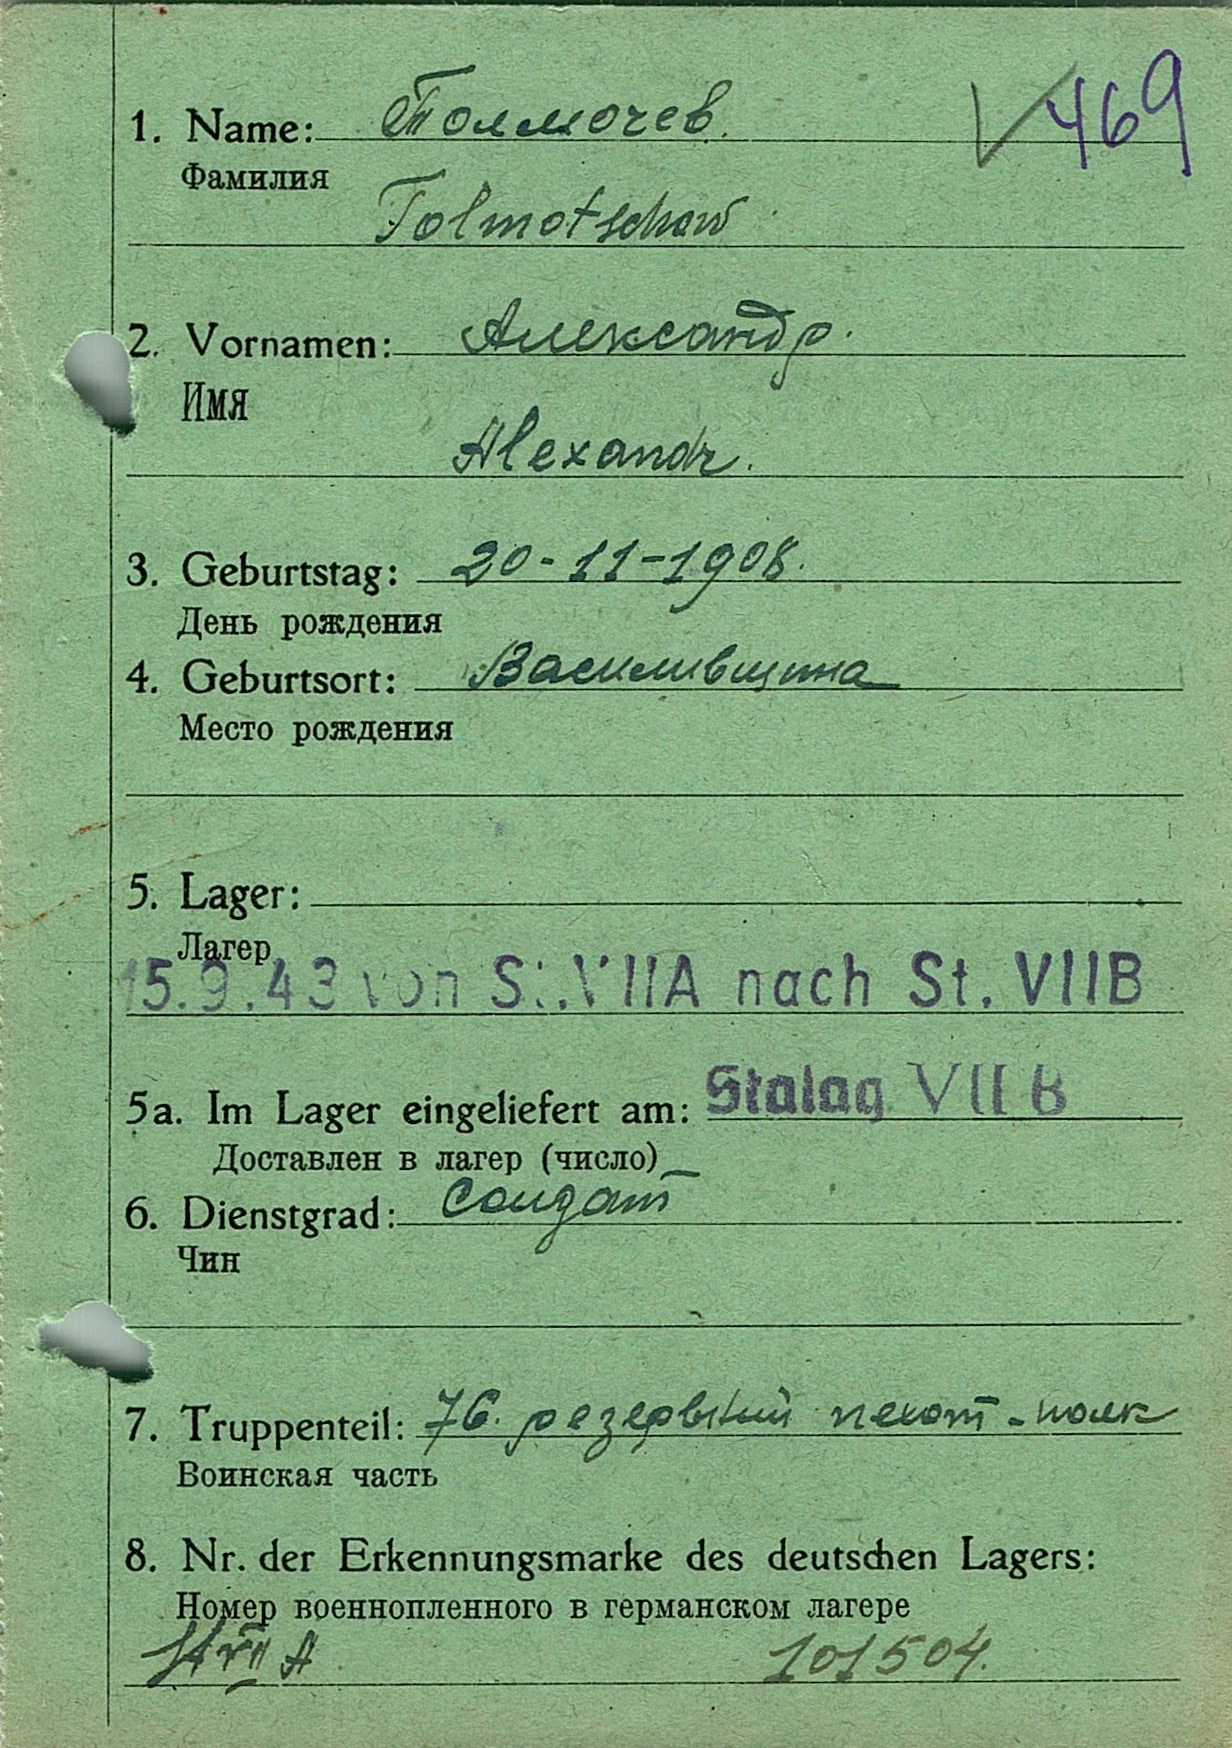 469
1. Name: Толмочев.
Фамилия
Tolmotschew
2. Vornamen: Александр.
Имя
Alexandr.
3. Geburtstag: 20-11-1908.
День рождения
4. Geburtsort: Василивщина
Место рождения
5. Lager:
Лагер
15.9.43 von St.VIIA nach St. VIIB
5a. Im Lager eingeliefert am: Stalag VII B
Доставлен в лагер (число)
6. Dienstgrad: Солдат
Чин
7. Truppenteil: 76. резервный пехот-полк
Воинская часть
8. Nr. der Erkennungsmarke des deutschen Lagers:
Номер военнопленного в германском лагере
St VII A 101504.